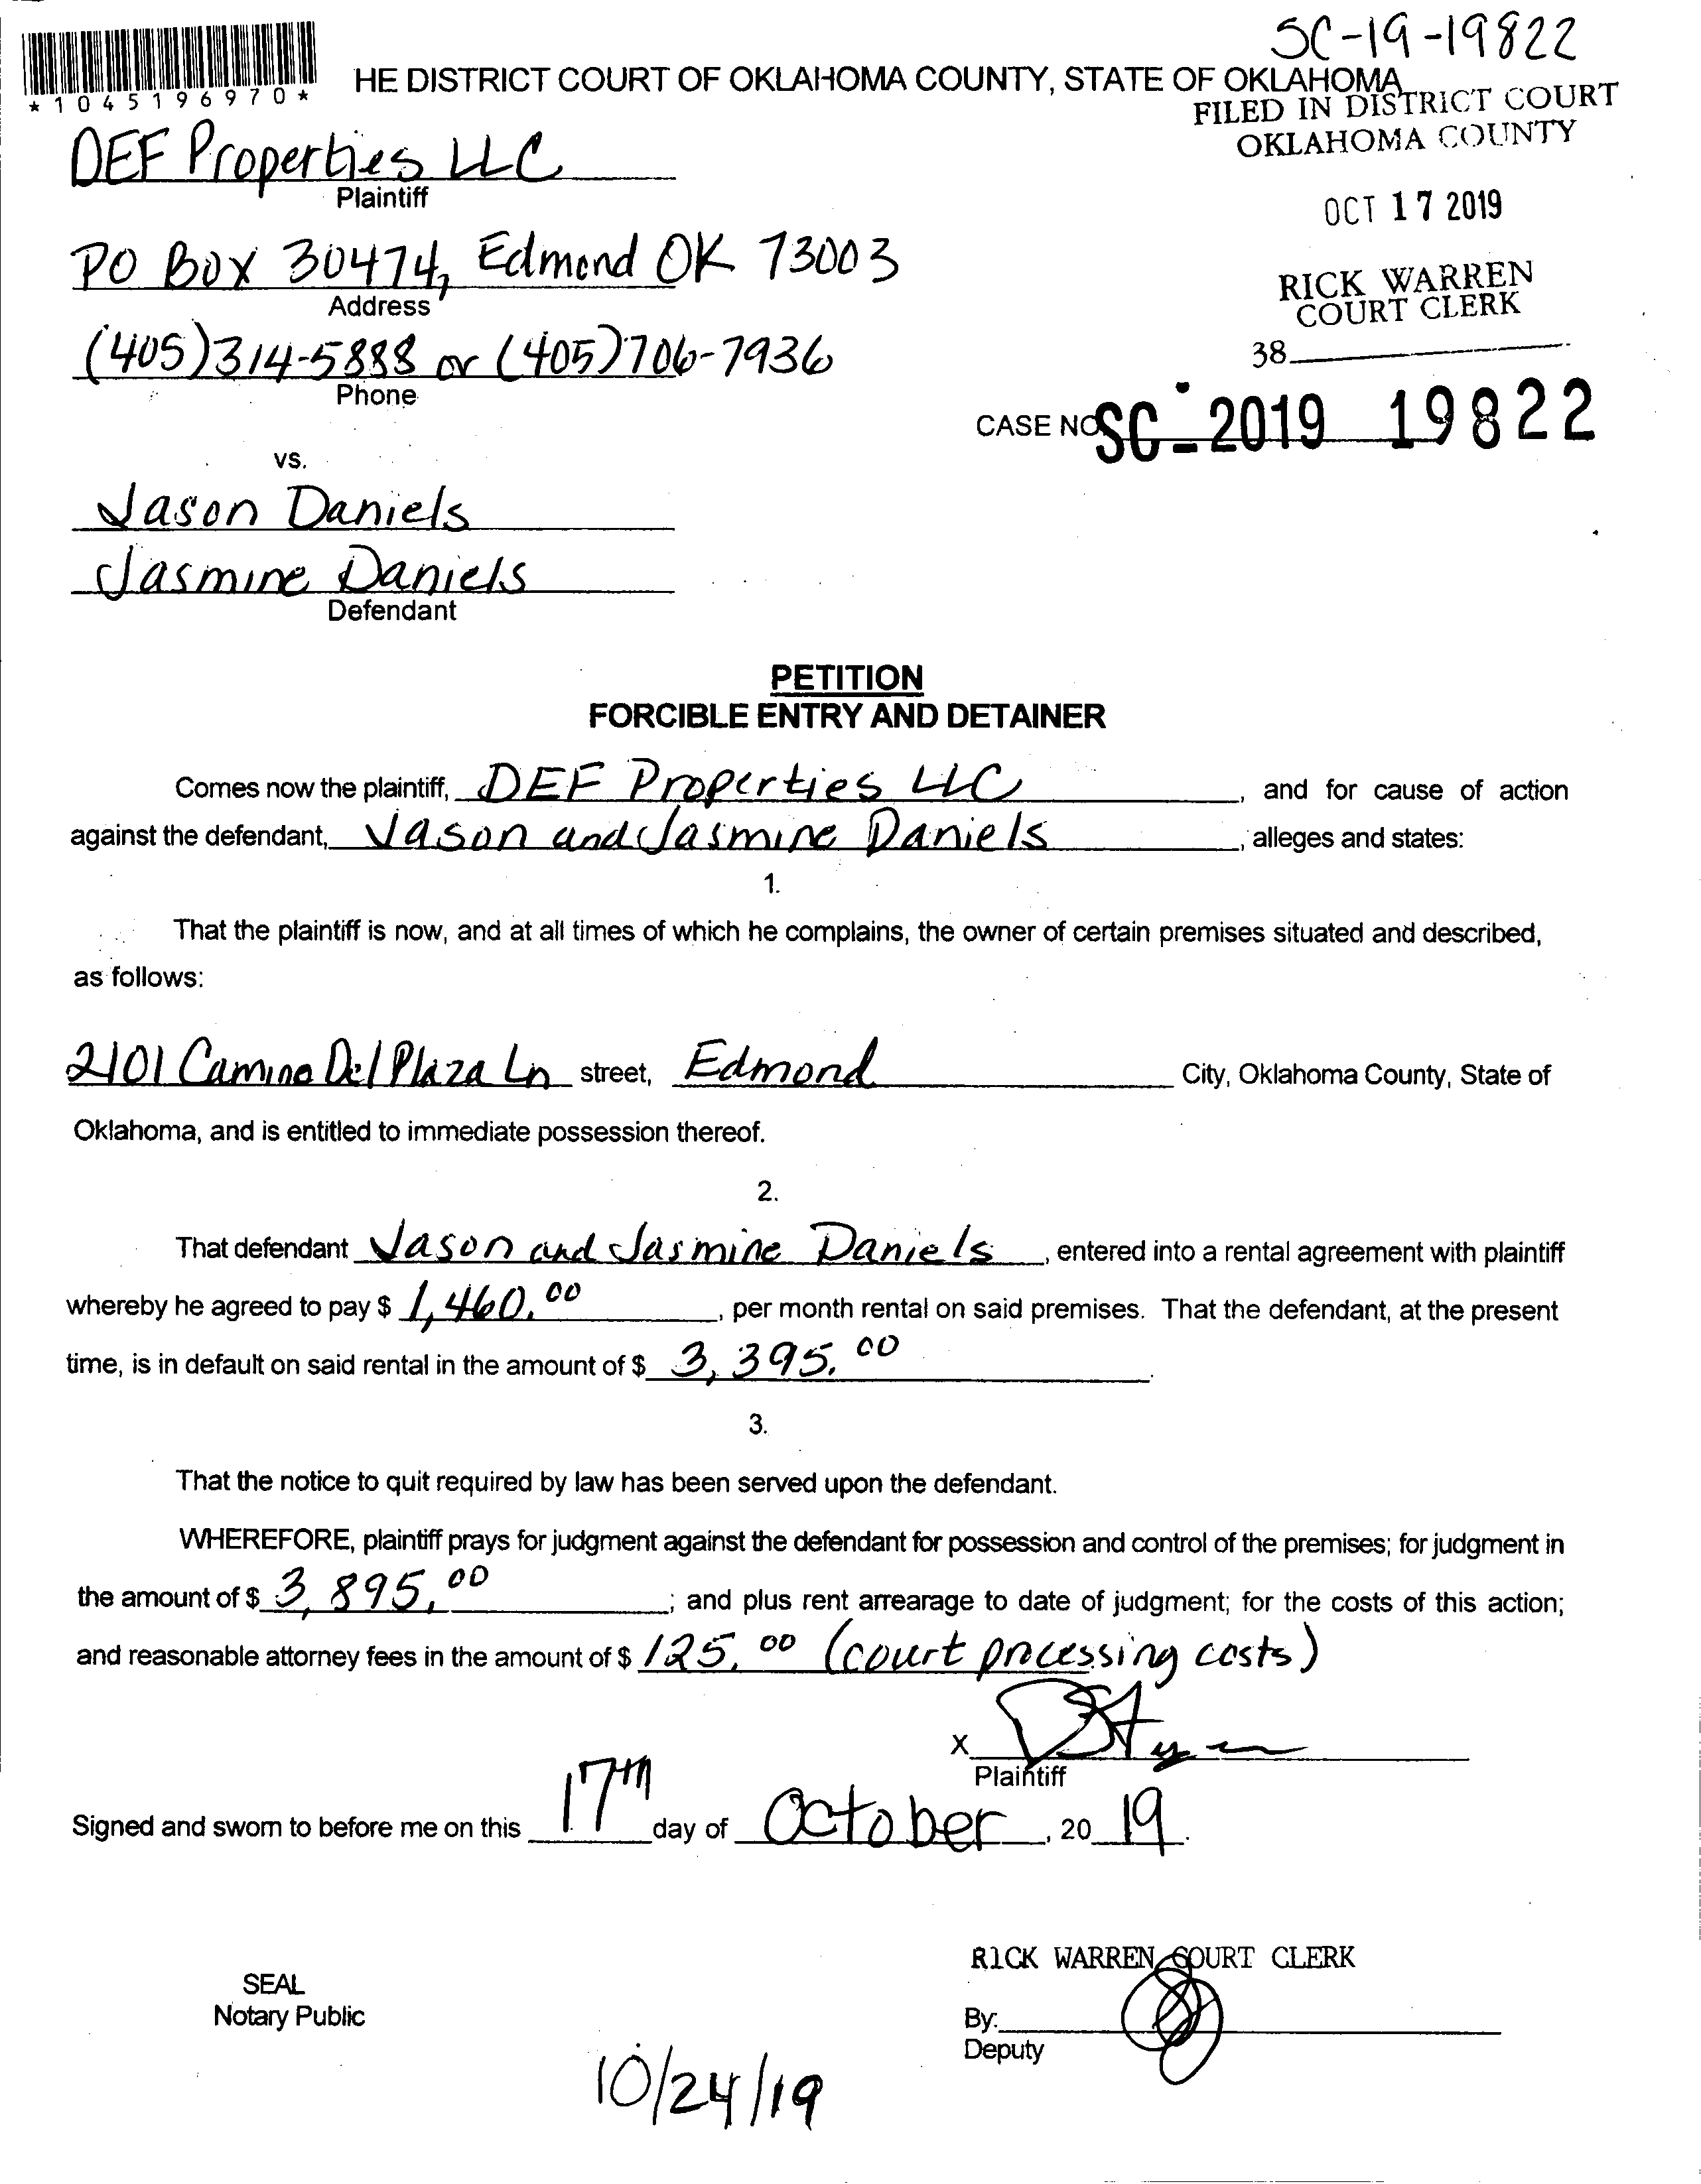 SC-19-19822
*1045196970*
HE DISTRICT COURT OF OKLAHOMA COUNTY, STATE OF OKLAHOMA
FILED IN DISTRICT COURT
OKLAHOMA COUNTY
DEF Properties LLC
Plaintiff
OCT 17 2019
PO Box 30474, Edmond OK 73003
Address
RICK WARREN
COURT CLERK
(405)314-5888 or (405)706-7936
Phone
38
CASE NO SC-2019 19822
vs.
Jason Daniels
Jasmine Daniels
Defendant
PETITION
FORCIBLE ENTRY AND DETAINER
Comes now the plaintiff, DEF Properties LLC, and for cause of action
against the defendant, Jason and Jasmine Daniels, alleges and states:
1.
That the plaintiff is now, and at all times of which he complains, the owner of certain premises situated and described,
as follows:
2101 Camino Del Plaza Ln street, Edmond City, Oklahoma County, State of
Oklahoma, and is entitled to immediate possession thereof.
2.
That defendant Jason and Jasmine Daniels, entered into a rental agreement with plaintiff
whereby he agreed to pay $ 1,460.00, per month rental on said premises. That the defendant, at the present
time, is in default on said rental in the amount of $ 3,395.00.
3.
That the notice to quit required by law has been served upon the defendant.
WHEREFORE, plaintiff prays for judgment against the defendant for possession and control of the premises; for judgment in
the amount of $ 3,895.00; and plus rent arrearage to date of judgment; for the costs of this action;
and reasonable attorney fees in the amount of $ 125.00 (court processing costs)
X
Plaintiff
Signed and sworn to before me on this 17th day of October, 20 19.
RICK WARREN COURT CLERK
SEAL
Notary Public
By:
Deputy
10/24/19